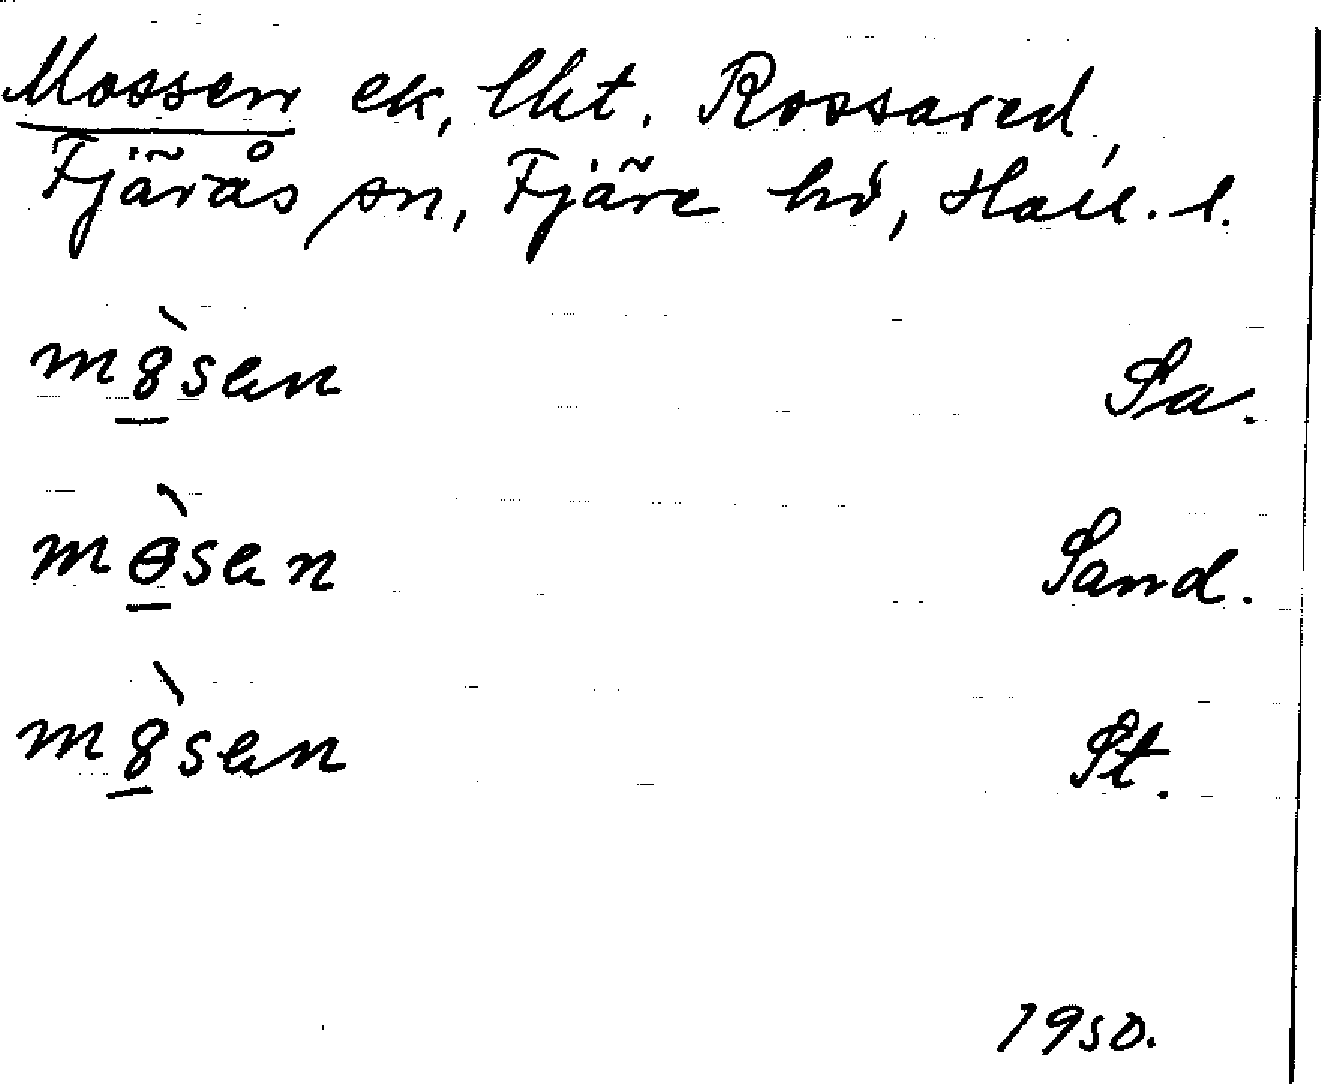 Mossen ek, lht. Rossared,
Fjärås sn, Fjäre hd, Hall. l.
mò̲sen Sa.
mɵ̲̀sen Sand.
mò̲sen St.
1950.